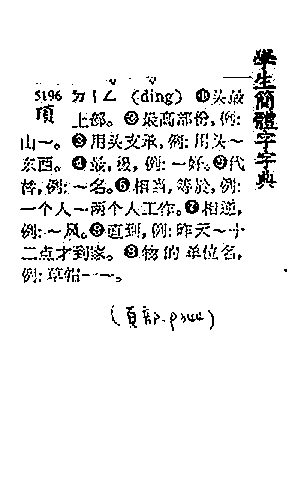 學生簡體字字典
5196 ㄉㄧㄥ (ding) ❶头最
頂 上部。❷最高部份, 例:
山~。❸用头支承, 例: 用头~
东西。❹最, 很, 例: ~好。❺代
替, 例: ~名。❻相当, 等於, 例:
一个人~两个人工作。❼相逆,
例: ~风。❽直到, 例: 昨天~十
二点才到家。❾物的单位名,
例: 草帽一~。
(頁部. p344)